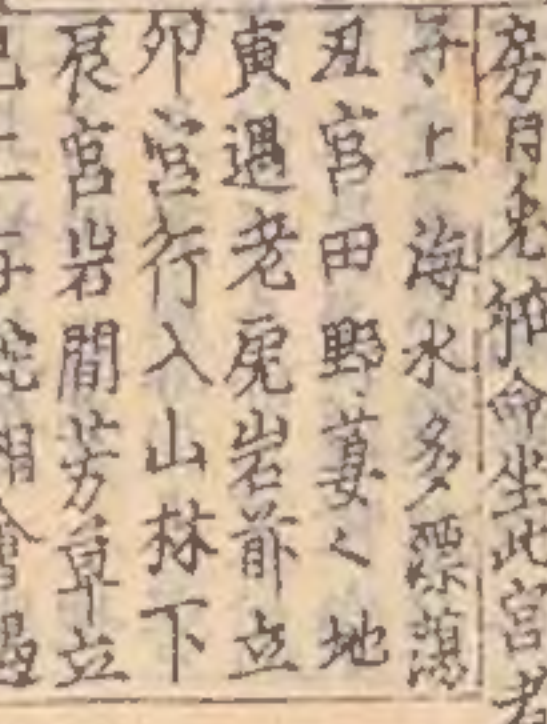 房日兔 命坐此宮者
子上海水多漂蕩
丑宮田野萋〻地
寅過老虎岩前立
卯宮行入山林下
辰宮岩間芳草立
巳上